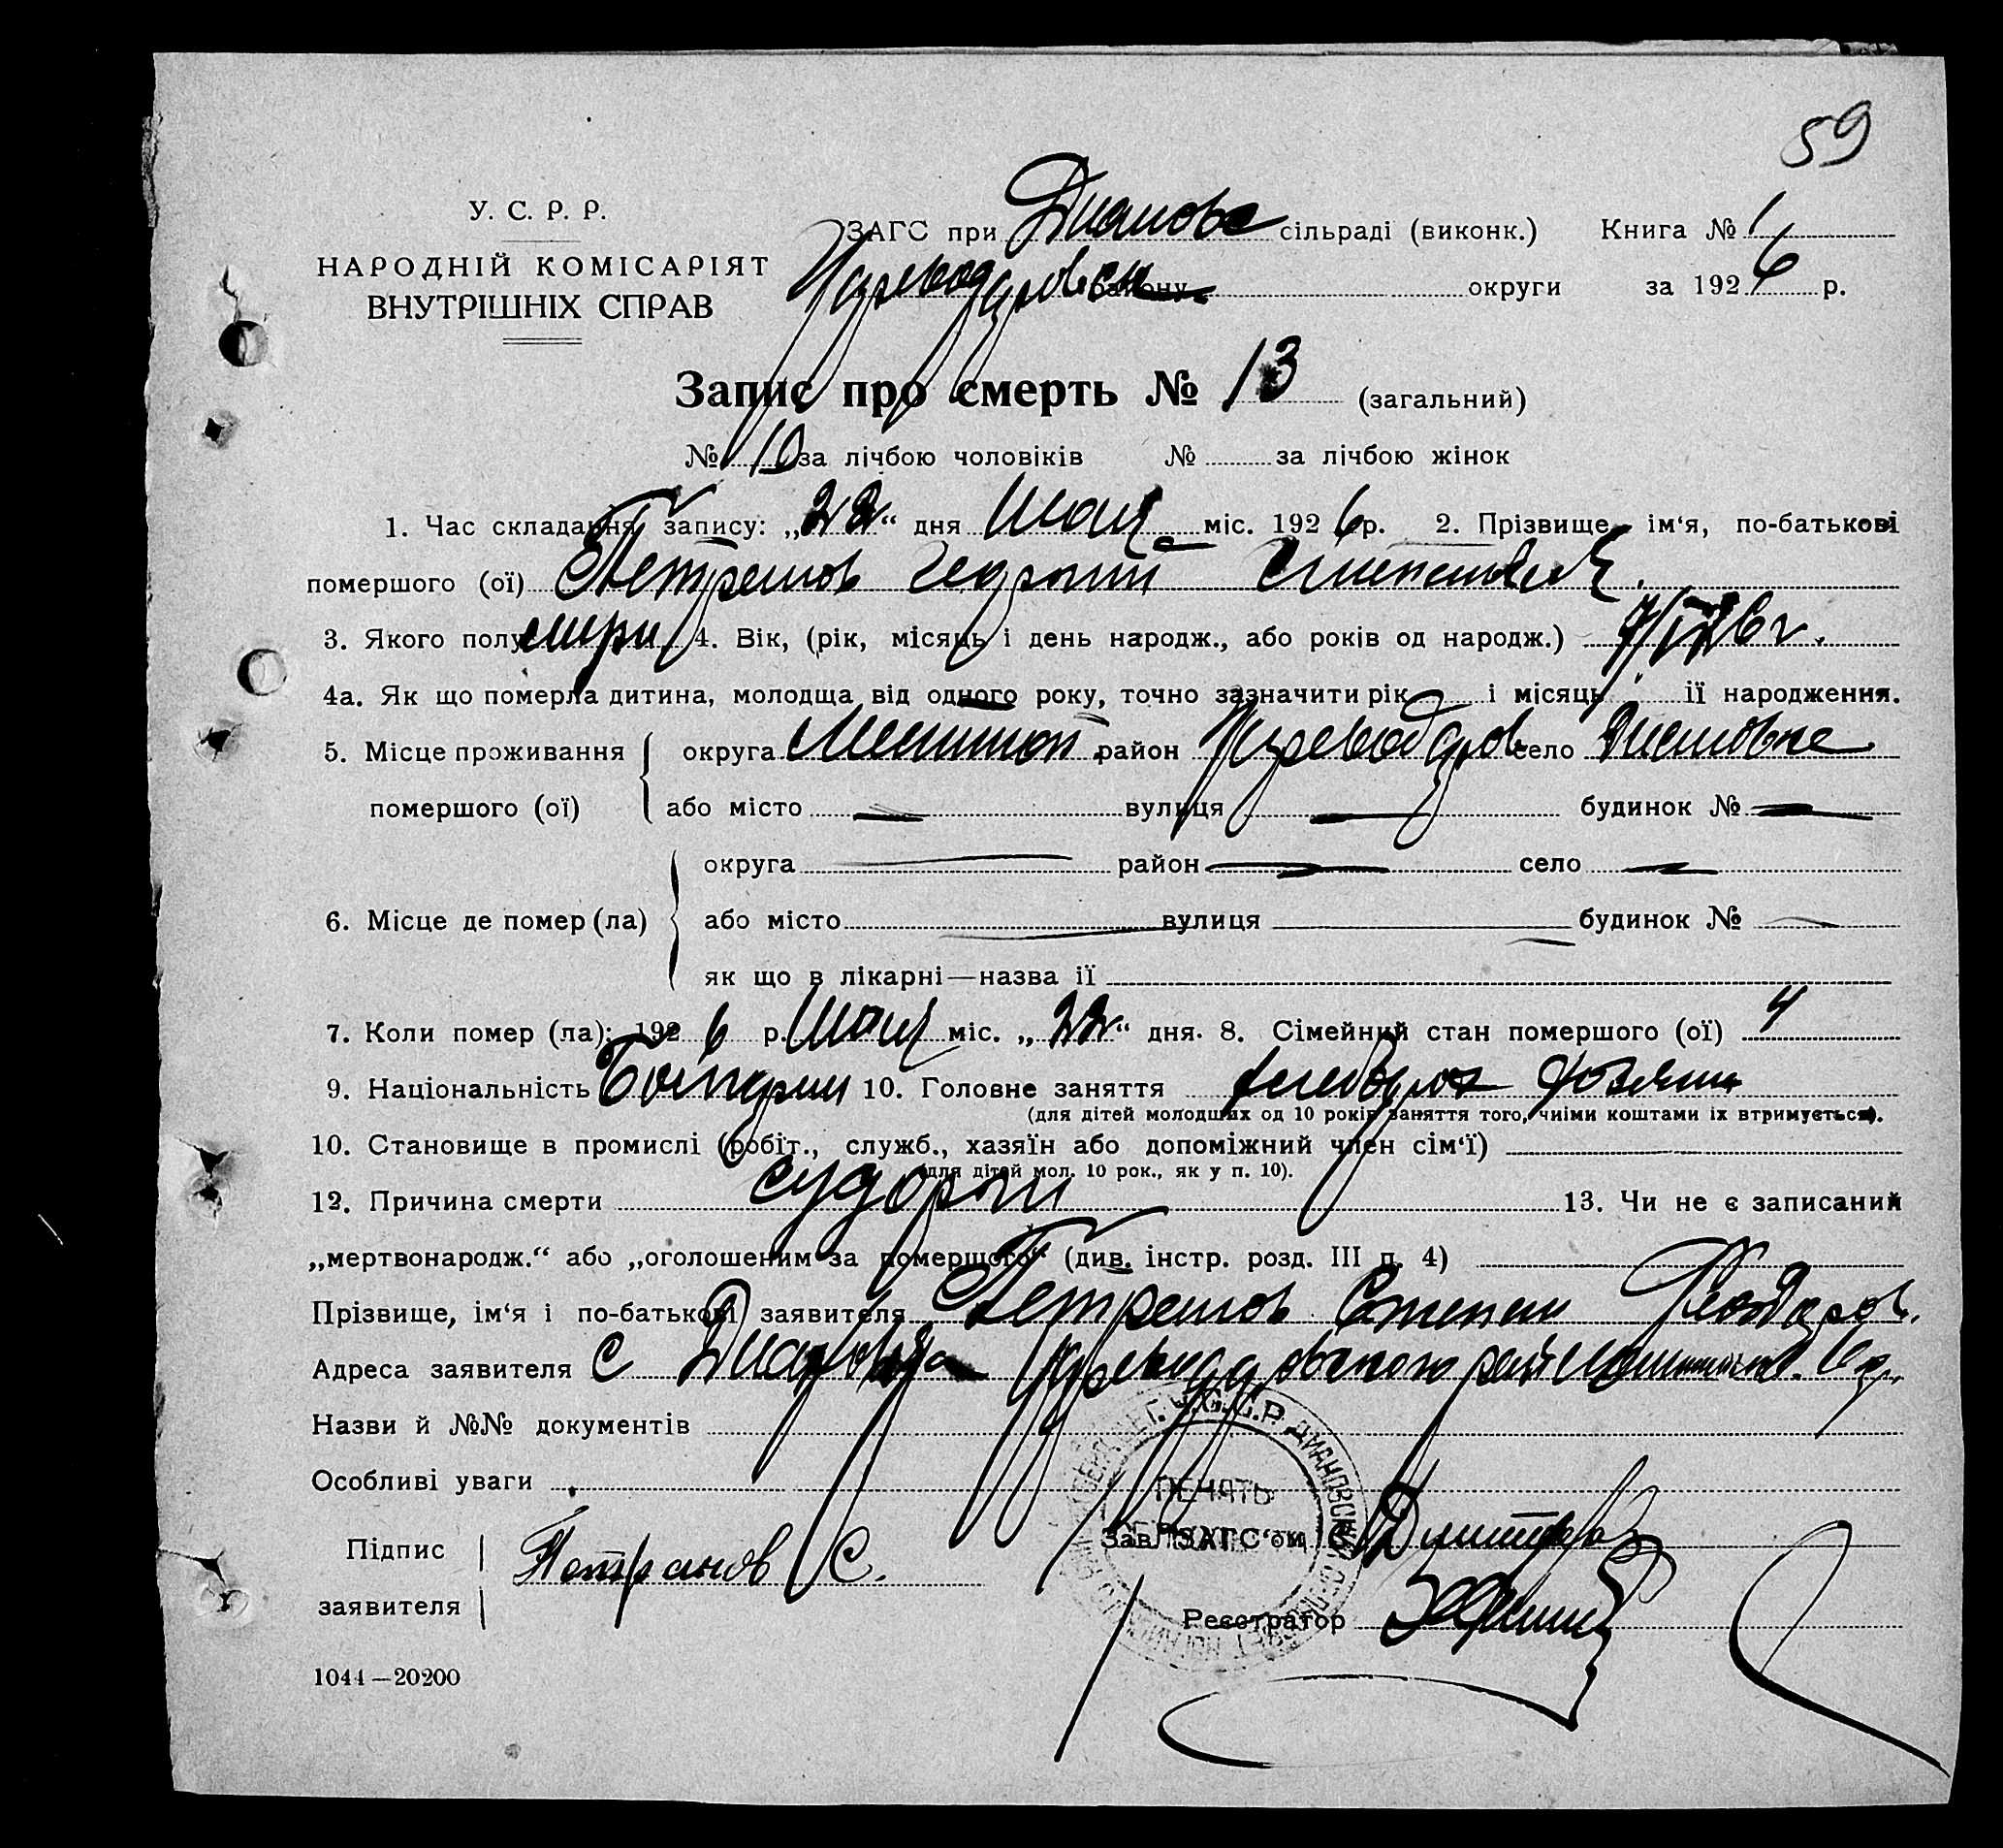 59
У. С. Р. Р.
НАРОДНІЙ КОМІСАРІЯТ
ВНУТРІШНІХ СПРАВ
ЗАГС при сільраді (виконк.) Книга № 1
району округи за 1926 р.
Запис про смерть № 13 (загальний)
№ 10 за лічбою чоловіків № за лічбою жінок
1. Час складання запису: „22“ дня Июня міс. 1926 р. 2. Прізвище, ім'я, по-батькові
помершого (ої) Петранов Георгий Степанович.
3. Якого полу 4. Вік, (рік, місяць і день народж., або років од народж.)
4а. Як що померла дитина, молодща від одного року, точно зазначити рік і місяць її народження.
5. Місце проживання округа район село
помершого (ої) або місто — вулиця — будинок № —
округа — район — село —
6. Місце де помер (ла) або місто — вулиця — будинок № —
як що в лікарні—назва її
7. Коли помер (ла): 1926 р. Июня міс. „22“ дня. 8. Сімейний стан помершого (ої)
9. Національність Болгарин 10. Головне заняття
(для дітей молодших од 10 років заняття того, чиїми коштами їх втримується).
10. Становище в промислі (робіт., служб., хазяїн або допоміжний член сім'ї)
(для дітей мол. 10 рок., як у п. 10).
12. Причина смерти судороги 13. Чи не є записаний
„мертвонародж.“ або „оголошеним за помершого“ (див. інстр. розд. III п. 4)
Прізвище, ім'я і по-батькові заявителя Петранов Степан Феодоров.
Адреса заявителя с
Назви й №№ документів
Особливі уваги
ПЕЧАТЬ
Підпис
заявителя Петранов С.
Зав. ЗАГС'ом
Реєстратор
1044—20200